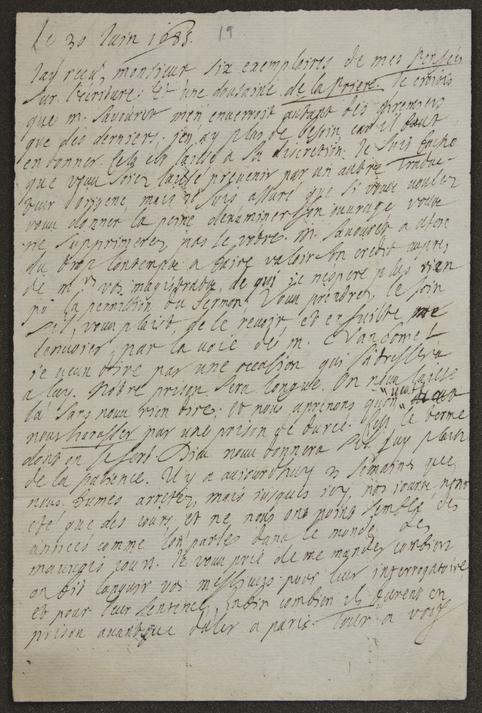 Le 30 Juin 1685. 19
Jay receu, monsieur six exemplaires de mes pensées
sur l'ecriture: Et une dousaine de la priere. Je croiois
que m. Savouret m'en envoieroit autant des premiers
que des derniers. j'en ay plus de besoin car il faut
en donner. cela est laissé a sa discretion. Je suis faché
que vous soiez laissé prevenir par un autre traduc-
teur d'origene mais je suis assuré que si vous voulez
vous donner la peine d'examiner son ouvrage vous
ne supprimerez pas le vôtre. m. Savouret a assez
du trop longtemps a faire valoir son credit
de m.rs vos magistrats, de qui je n'espere plus rien
po la permission du sermon. Vous prendrez, le soin
s'il, vous plaist, de le revoir et en suitte me
l'envoier, par la voie de m.
je veux dire par une occasion qui s'adresse
a luy. Nôtre prison sera longue. On nous laisse
là sans nous rien dire: et nous aprenons qu'on veut
nous harasser par une prison de durée. c'est le terme
dont on se sert. Dieu nous donnera s'il luy plaist
de la patience. Il y a aujourdhuy semaines que
nous fumes arrestez, mais jusques icy, nos jours n'ont
eté que des jours et ne nous ont point semblé des
années comme l'on parle dans le monde des
mauvais jours. Je vous prie de me mander combien
on fit languir vos messieurs pour leur interrogatoire
et pour leur sentence, enfin combien ils furent en
prison avant que d'aler a paris. Tout a vous